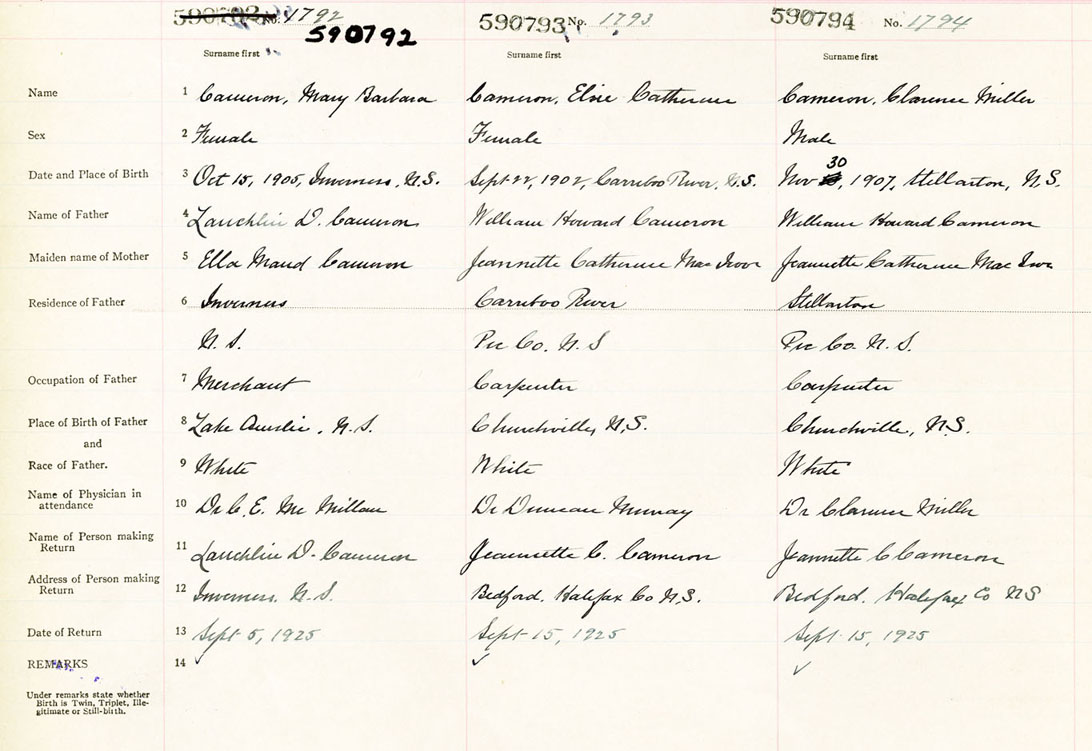 590792 No. 1792 590793 No. 1793 590794 No. 1794
590792
Surname first Surname first Surname first
Name 1 Cameron, Mary Barbara Cameron, Elsie Catherine Cameron, Clarence Miller
Sex 2 Female Female Male
30
Date and Place of Birth 3 Oct 15, 1905, Inverness, N.S. Sept 22, 1902, Carriboo River, N.S. Nov , 1907, Stellarton, N.S.
Name of Father 4 Lauchlin D. Cameron William Howard Cameron William Howard Cameron
Maiden name of Mother 5 Ella Maud Cameron Jeannette Catherine Mac Ivor Jeannette Catherine Mac Ivor
Residence of Father 6 Inverness Carriboo River Stellarton
N. S. Pic Co. N. S Pic Co. N. S.
Occupation of Father 7 Merchant Carpenter Carpenter
Place of Birth of Father 8 Lake Ainslie, N.S. Churchville, N.S. Churchville, N.S.
and
Race of Father. 9 White White White
Name of Physician in
attendance 10 Dr C. E. Mc Millan Dr Duncan Murray Dr Clarence Miller
Name of Person making
Return 11 Lauchlin D. Cameron Jeannette C. Cameron Jeannette C Cameron
Address of Person making
Return 12 Inverness. N.S. Bedford. Halifax Co N.S. Bedford. Halifax Co NS
Date of Return 13 Sept 5, 1925 Sept 15, 1925 Sept 15, 1925
REMARKS 14 ✓ ✓ ✓
Under remarks state whether
Birth is Twin, Triplet, Ille-
gitimate or Still-birth.